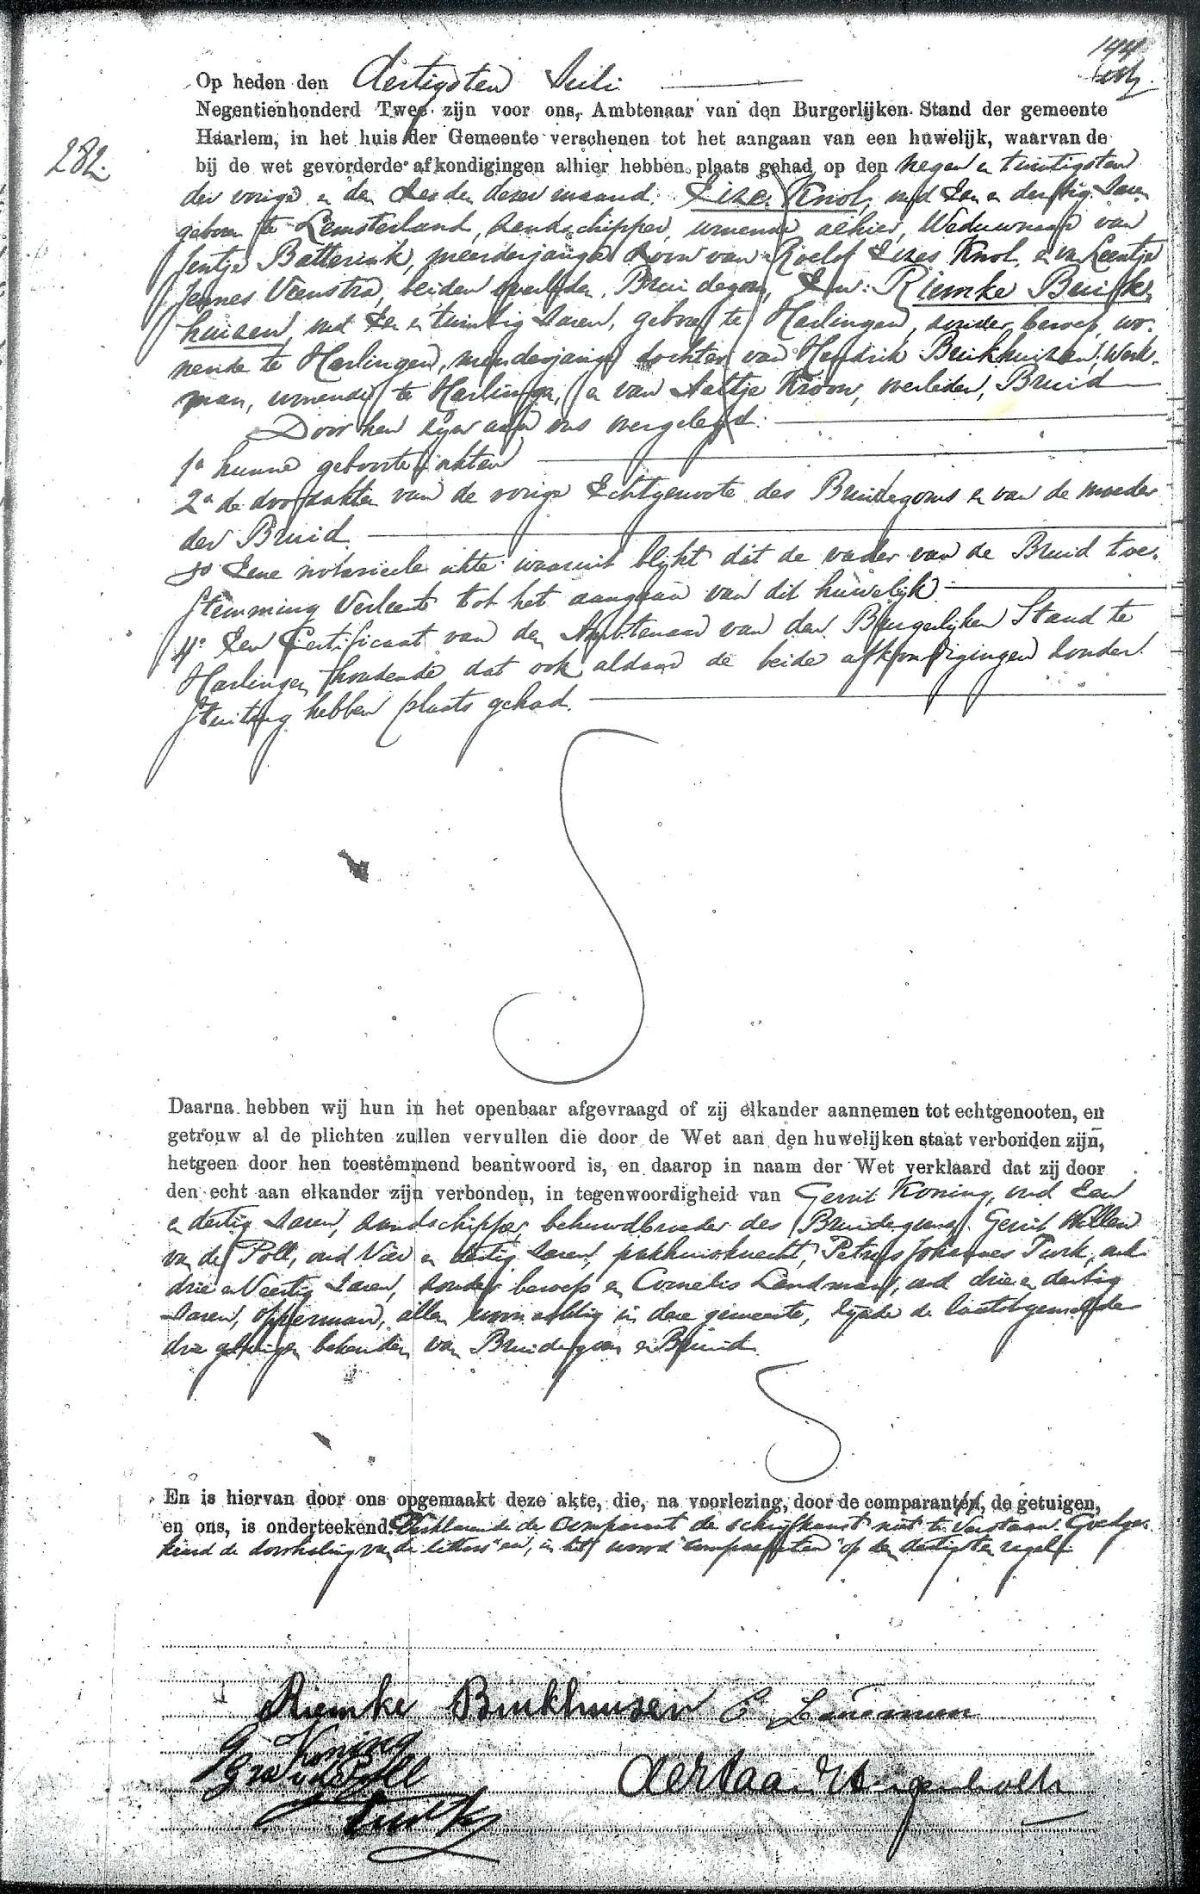 194
Op heden den dertigsten Juli
Negentienhonderd Twee zijn voor ons, Ambtenaar van den Burgerlijken Stand der gemeente
Haarlem, in het huis der Gemeente verschenen tot het aangaan van een huwelijk, waarvan de
282.
bij de wet gevorderde afkondigingen alhier hebben plaats gehad op den negen en twintigsten
der vorige en den derden dezer maand: Sixe Knol, oud Een en dertig Jaren
geboren te Lemsterland, zandschipper, wonende alhier, Weduwnaar van
Jentje Batterink, meerderjarige Zoon van Roelof Sixes Knol, en van Leentje
Jennes Veenstra, beiden overleden, Bruidegom, Een: Riemke Buikhuizen
huizen, oud Een en twintig Jaren, geboren te Harlingen, zonder beroep, wo-
nende te Harlingen, minderjarige dochter van Hendrik Buikhuizen, Werk-
man, wonende te Harlingen, en van Aaltje Kroon, overleden, Bruid
Door hen zijn aan ons overgelegd:
1° hunne geboorteakten
2° de doodakten van de vorige Echtgenoote des Bruidegoms en van de moeder
der Bruid.
3° Eene notarieele akte waaruit blijkt dat de vader van de Bruid toe-
stemming Verleent tot het aangaan van dit huwelijk
4° Een Certificaat van den Ambtenaar van den Burgerlijken Stand te
Harlingen houdende dat ook aldaar de beide afkondigingen zonder
Stuiting hebben plaats gehad.
Daarna hebben wij hun in het openbaar afgevraagd of zij elkander aannemen tot echtgenooten, en
getrouw al de plichten zullen vervullen die door de Wet aan den huwelijken staat verbonden zijn,
hetgeen door hen toestemmend beantwoord is, en daarop in naam der Wet verklaard dat zij door
den echt aan elkander zijn verbonden, in tegenwoordigheid van Gerrit Koning, oud Een
en dertig Jaren, zandschipper, behuwdbroeder des Bruidegoms, Gerrit Willem
van de Poll, oud Vier en dertig Jaren, pakhuisknecht, Petrus Johannes Turk, oud
drie en Veertig Jaren, zonder beroep en Cornelis Landman, oud drie en dertig
Jaren, opperman, allen woonachtig in deze gemeente, zijnde de laatstgemelde
drie getuigen bekenden van Bruidegom en Bruid.
En is hiervan door ons opgemaakt deze akte, die, na voorlezing, door de comparanten, de getuigen,
en ons, is onderteekend. Verklarende de Comparant de schrijfkunst niet te Verstaan. Goedge-
keurd de doorhaling van de letters "en", in het woord "comparanten" op den dertigsten regel.
Riemke Buikhuisen C Landman
G Koning
G W vd Poll
Turk